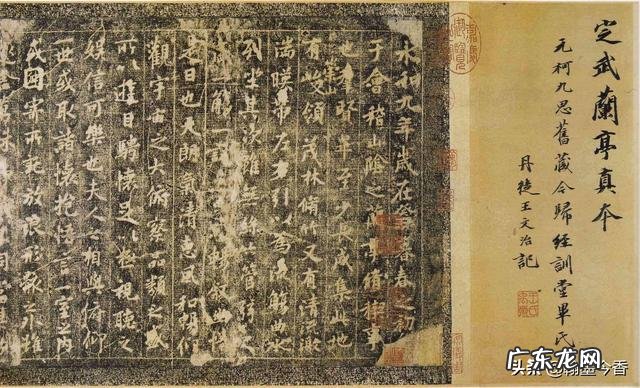 定武蘭亭真本
元柯九思舊藏今歸經訓堂畢氏
丹徒王文治記
永和九年歲在癸丑暮春之初
于會稽山陰之蘭亭脩稧事
也羣賢畢至少長咸集此地
有崇山峻領茂林脩竹又有清流激
湍暎帶左右引以為流觴曲水
列坐其次雖無絲竹管弦之
盛一觴一詠亦足以暢敘幽情
是日也天朗氣清惠風和暢仰
觀宇宙之大俯察品類之盛
所以遊目騁懷足以極視聽之
娛信可樂也夫人之相與俯仰
一世或取諸懷抱悟言一室之內
或因寄所託放浪形骸之外雖
头条
今香
广东龙网